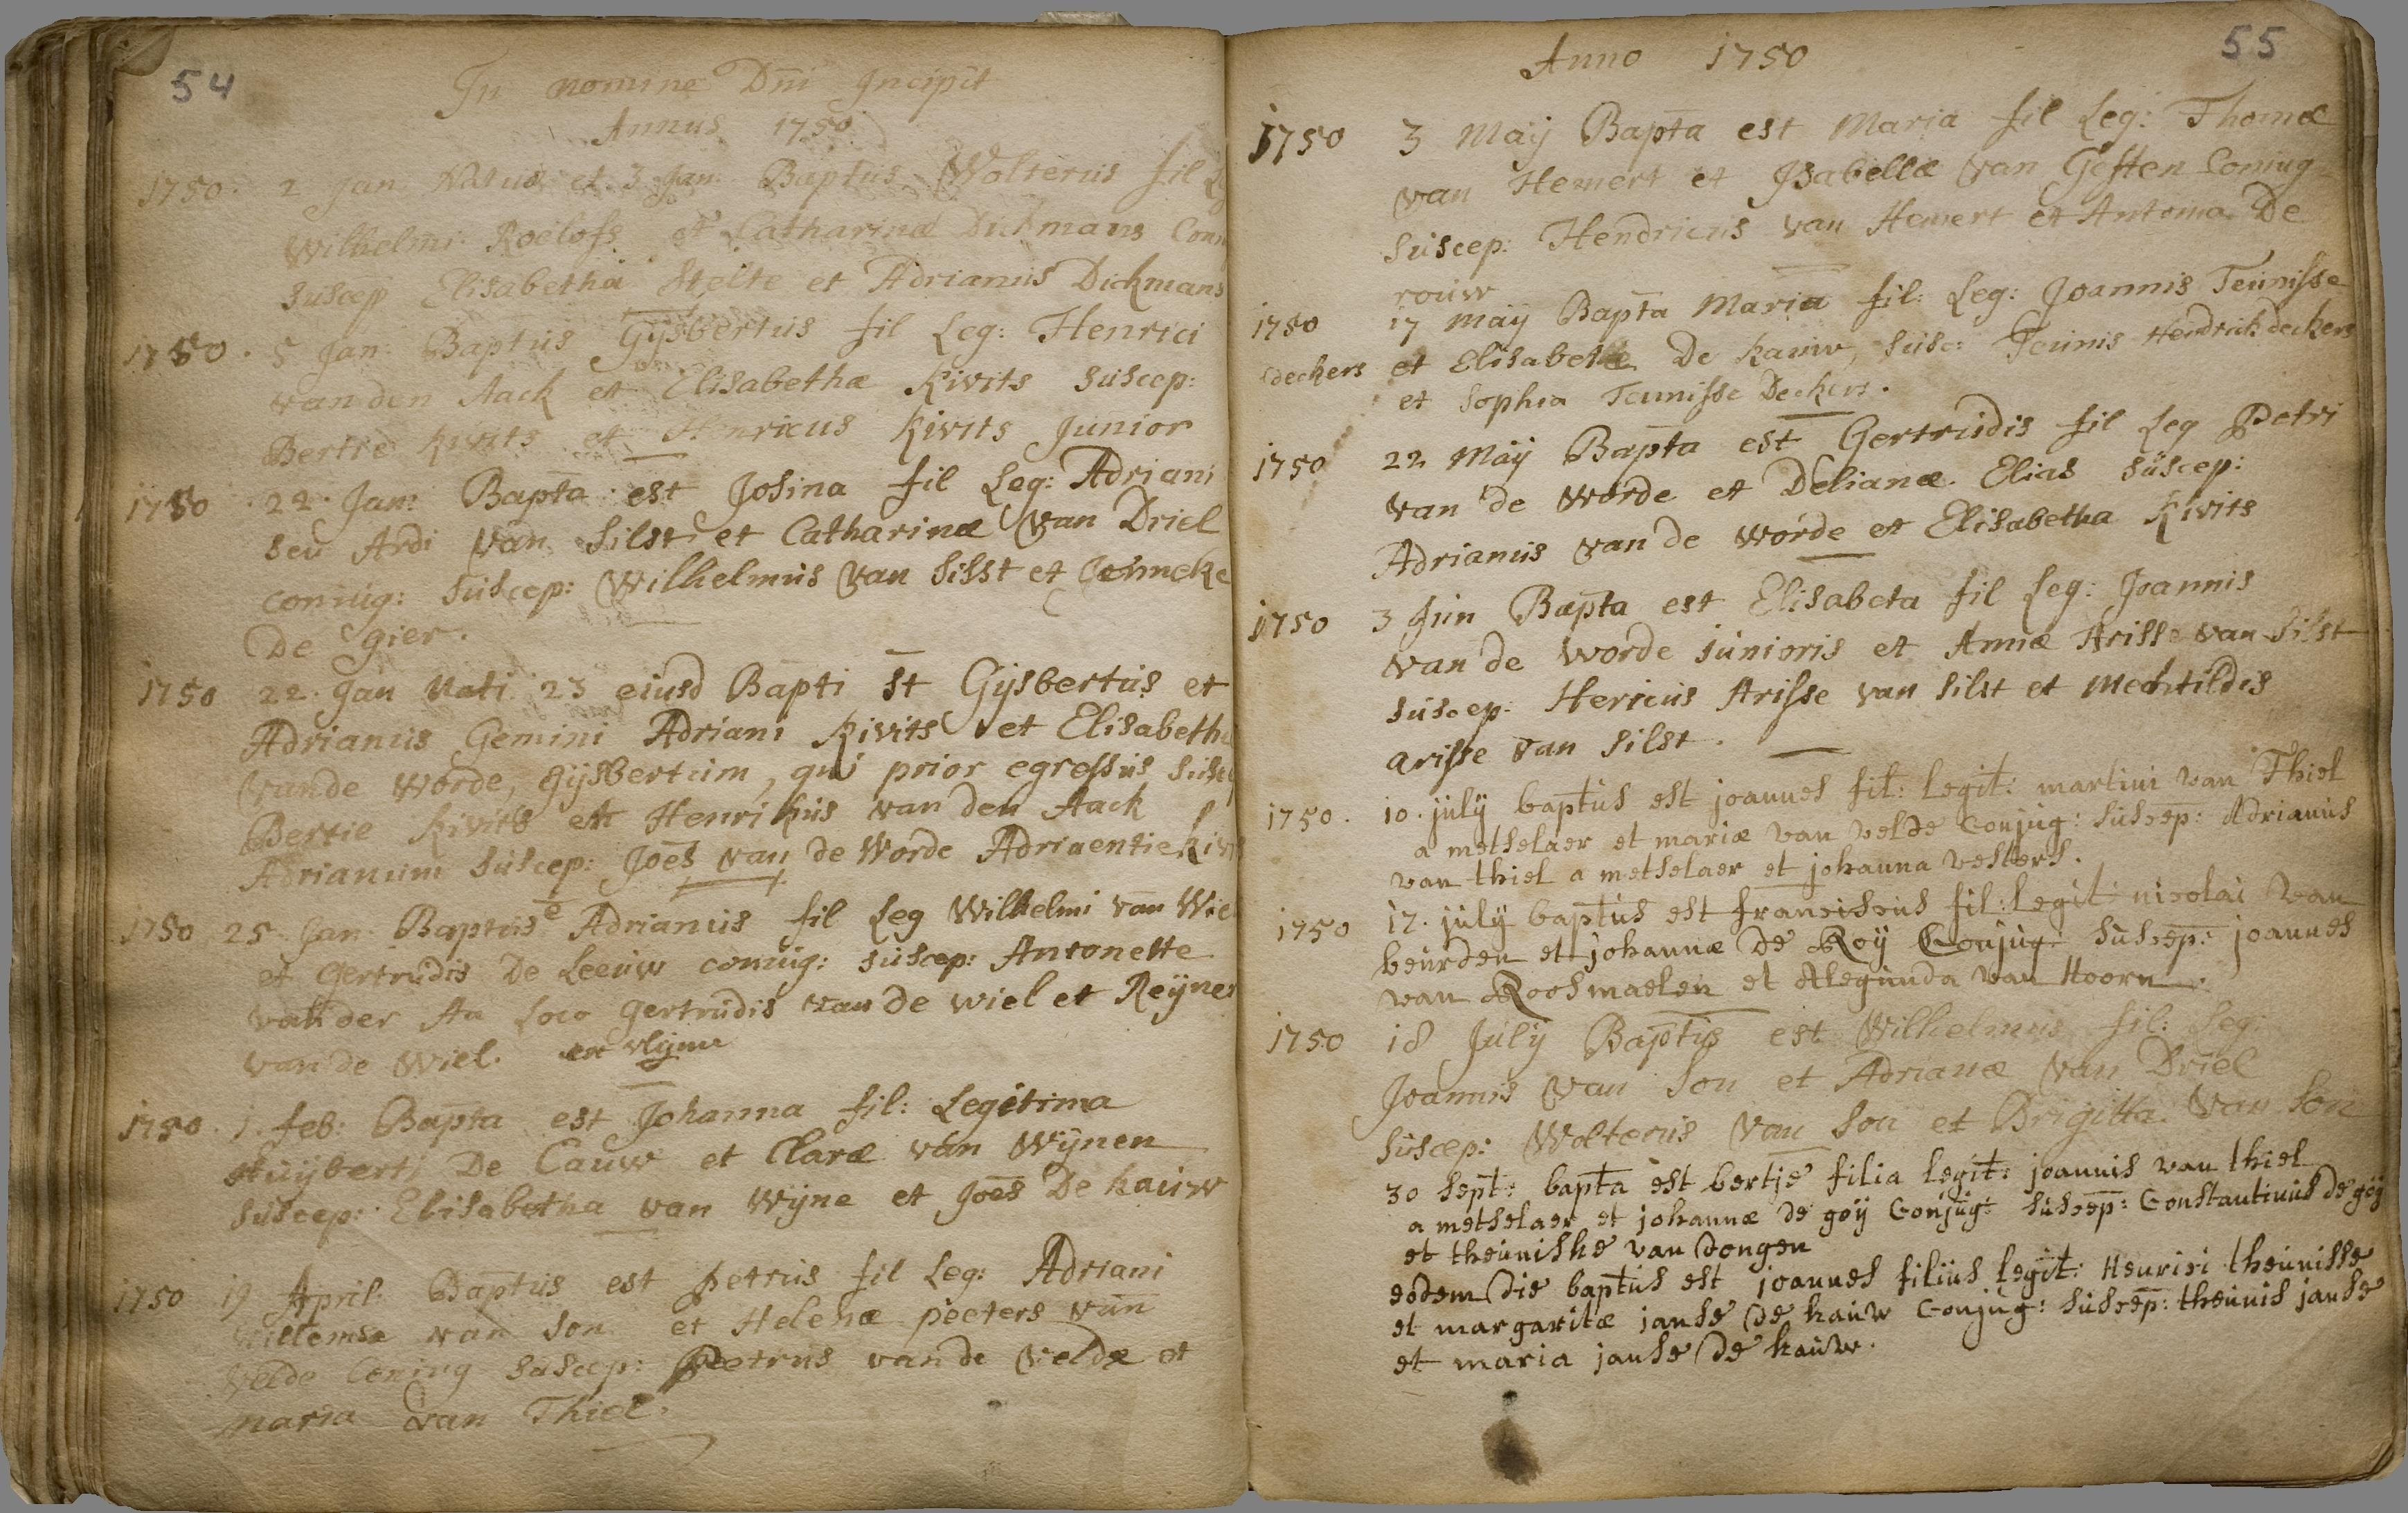 54
In nomine Dni Incipit
Annus 1750
1750. 2 Jan Natus et 3 Jan Baptus Wolterus fil
Wilhelmi Roelofs et Catharina Dickmans
suscep Elisabetha Stelte et Adrianus Dickmans
1750. 5 Jan Baptus Gijsbertus fil Leg: Henrici
van den Aack et Elisabethæ Kivits suscep:
Bertie Kivits et Henricus Kivits Junior
1750 22. Jan: Bapta est Josina fil Leg: Adriani
seu Ardi van Silst et Catharinæ van Driel
coniug: suscep: Wilhelmus van Silst et Jenneke
De gier.
1750 22. Jan Nati 23 eiusd Bapti st Gijsbertus et
Adrianus Gemini Adriani Kivits et Elisabetha
vande Worde, Gijsbertum, qui prior egressus
Bertie Kivits et Henrikus van den Aack
Adrianum suscep: Joes van de Worde Adriaentie
1750 25 Jan Baptus e Adrianus fil Leg Wilhelmi van
et Gertrudis De Leeuw coniug: suscep: Antonette
vander Aa loco Gertrudis van de wiel et
van de Wiel. ex vlijme
1750. 1. feb: Bapta est Johanna fil: Legitima
Huijberti De Cauw et Claræ van Wijnen
suscep: Elisabetha van Wijne et Joes De Kauw
1750 19 April: Baptus est petrus fil Leg: Adriani
Willemse van Son et Helenæ peeters van
velde coniug suscep: Petrus van de Velde et
maria van Thiel.
Anno 1750
55
1750 3 Maij Bapta est Maria fil Leg: Thomæ
van Hemert et Isabellæ van Gesten Coniug
suscep: Hendricus van Hemert et Antonia De
rouw
1750 17 maij Bapta Maria fil: Leg: Joannis Teunisse
deckers et Elisabetæ De Kauw, susc: Teunis Hendrick deckers
et Sophia Teunisse Deckers.
1750 22 Maij Bapta est Gertrudis fil Leg Petri
van de Worde et Delianæ Elias suscep:
Adrianus van de worde et Elisabetha Kivits
1750 3 Jun Bapta est Elisabeta fil Leg: Joannis
van de worde junioris et Annæ Arisse van Silst
suscep: Hericus Arisse van Silst et Mechtildis
arisse van Silst.
1750. 10. julij baptus est joannes fil: legit: martini van Thiel
a metselaer et mariæ van velde Conjug: suscep: Adrianus
van thiel a metselaer et johanna vesters.
1750 17. julij baptus est franciscus fil: legit: nicolai van
beurden et johannæ De Roij Conjug: suscep: joannes
van Roosmaelen et Alegunda van Hoorn.
1750 18 Julij Baptus est Wilhelmus fil: Leg:
Joannis van Son et Adrianæ van Driel
suscep: Wolterus van Son et Brigitta van Son
30 sept: bapta est bertje filia legit: joannis van thiel
a metselaer et johannæ de goij Conjug: suscep: Constantinus de goij
et theuniske van dongen
eodem die baptus est joannes filius legit: Henrici theunisse
et margaritæ janse de kauw Conjug: suscep: theunis janse
et maria janse de kauw.